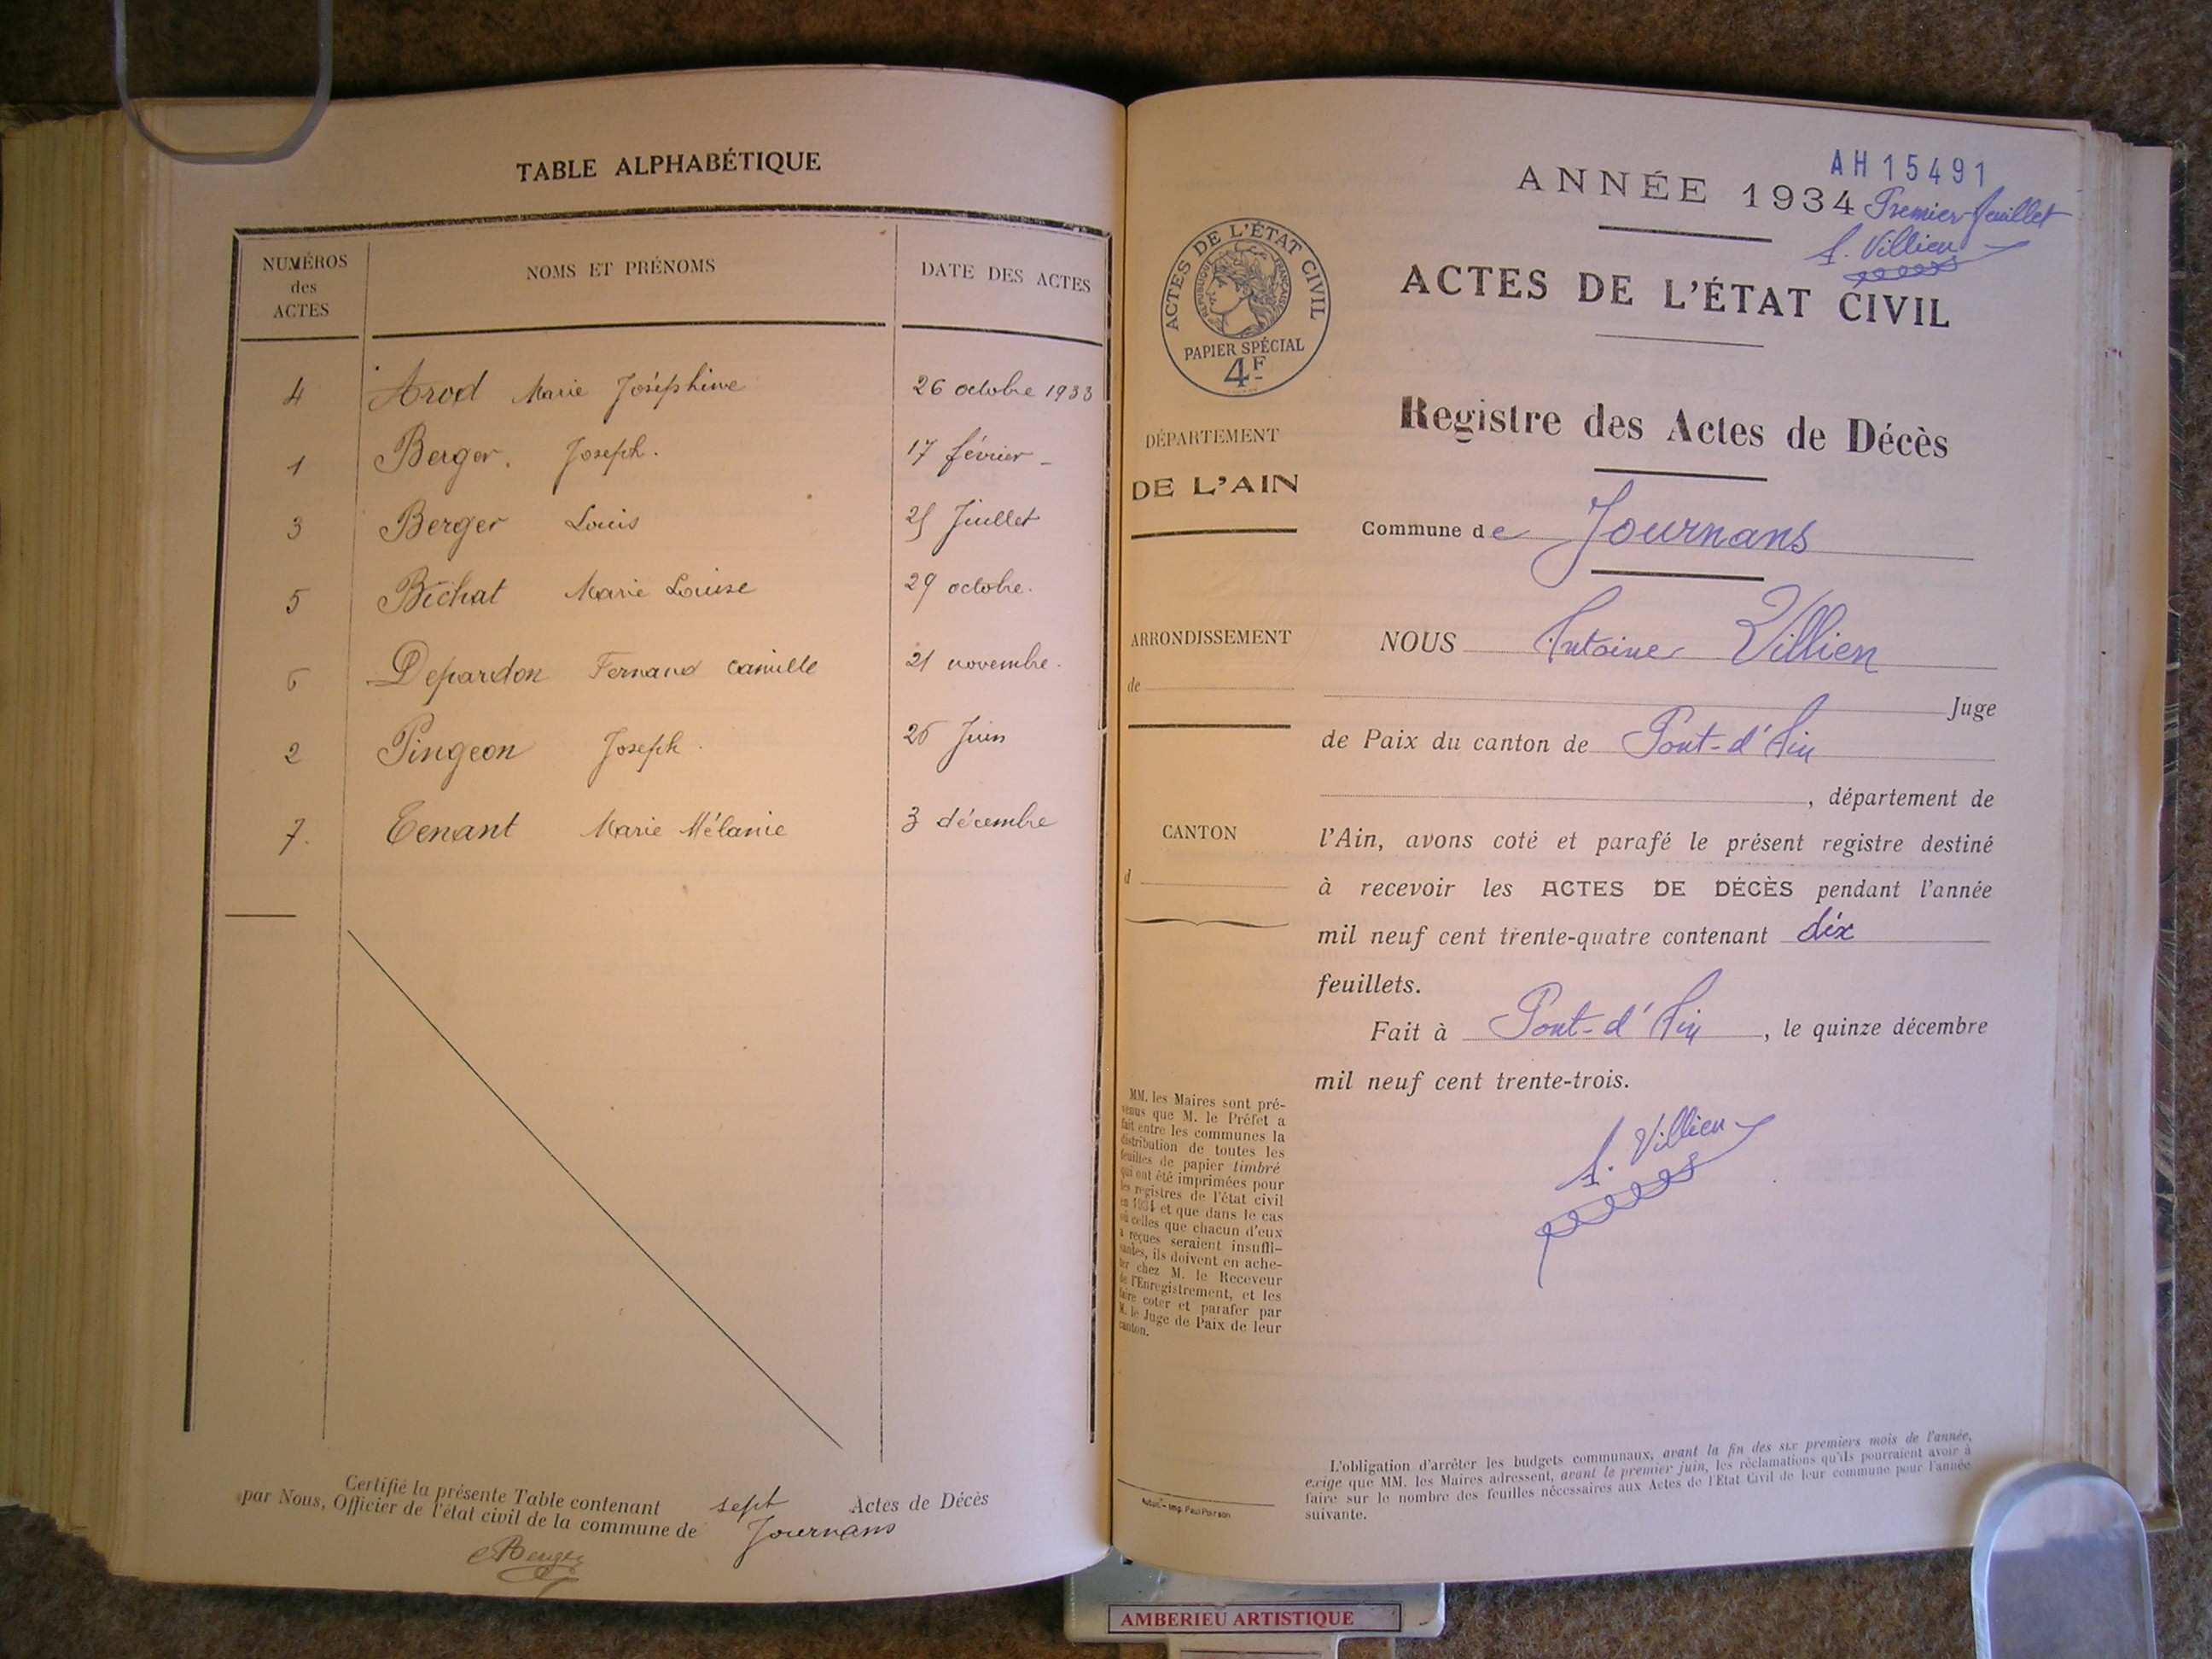 TABLE ALPHABÉTIQUE
NUMÉROS des ACTES
NOMS ET PRÉNOMS
DATE DES ACTES
4 Arod Marie Joséphine 26 octobre 1933
1 Berger Joseph. 17 février -
3 Berger Louis 25 Juillet
5 Bichat Marie Louise 29 octobre.
6 Depardon Fernand Camille 21 novembre.
2 Pingeon Joseph. 26 Juin
7. Tenant Marie Mélanie 3 décembre
Certifié la présente Table contenant sept Actes de Décès
par Nous, Officier de l'état civil de la commune de Journans
Berger
AH 15491
ANNÉE 1934 Premier feuillet
A. Villien
ACTES DE L'ÉTAT CIVIL
RÉPUBLIQUE FRANÇAISE
PAPIER SPÉCIAL
4F
ACTES DE L'ÉTAT CIVIL
Registre des Actes de Décès
DÉPARTEMENT
DE L'AIN
Commune de Journans
ARRONDISSEMENT
de
NOUS Antoine Villien
Juge
de Paix du canton de Pont-d'Ain
, département de
CANTON
d
l'Ain, avons coté et parafé le présent registre destiné
à recevoir les ACTES DE DÉCÈS pendant l'année
mil neuf cent trente-quatre contenant dix
feuillets.
Fait à Pont-d'Ain, le quinze décembre
mil neuf cent trente-trois.
A. Villien
MM. les Maires sont pré-
venus que M. le Préfet a
fait entre les communes la
distribution de toutes les
feuilles de papier timbré
qui ont été imprimées pour
les registres de l'état civil
en 1934 et que dans le cas
où celles que chacun d'eux
a reçues seraient insuffi-
santes, ils doivent en ache-
ter chez M. le Receveur
de l'Enregistrement, et les
faire coter et parafer par
M. le Juge de Paix de leur
canton.
L'obligation d'arrêter les budgets communaux, avant la fin des six premiers mois de l'année,
exige que MM. les Maires adressent, avant le premier juin, les réclamations qu'ils pourraient avoir à
faire sur le nombre des feuilles nécessaires aux Actes de l'État Civil de leur commune pour l'année
suivante.
Imp. Paul Poirson
AMBERIEU ARTISTIQUE